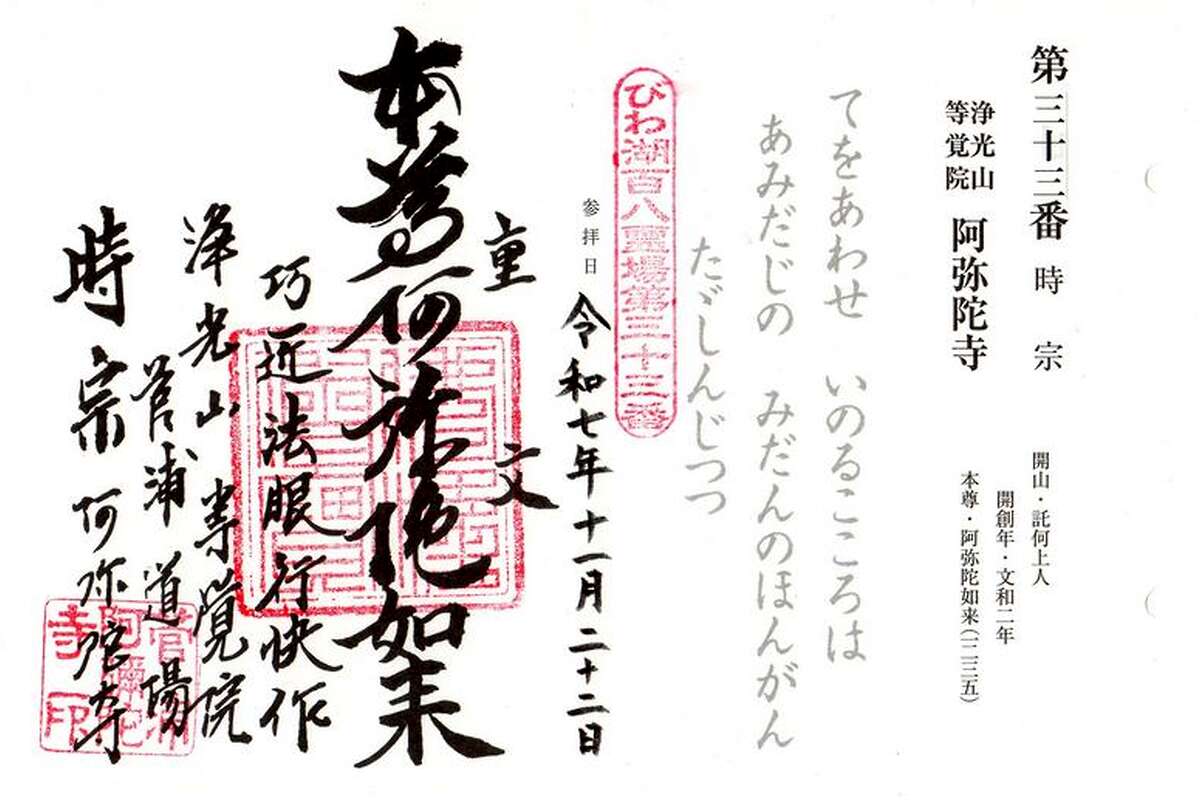 第三十三番 時宗
浄光山
等覚院
阿弥陀寺
開山・託何上人
開創年・文和二年
本尊・阿弥陀如来(一二三五)
てをあわせ いのるこころは
あみだじの みだんのほんがん
たゞしんじつつ
びわ湖百八霊場第三十三番
参拝日 令和七年十一月二十二日
重文
本尊阿弥陀如来
巧匠法眼行快作
浄光山 等覚院
菅浦 道場
時宗 阿弥陀寺
菅浦
阿彌陀
寺印